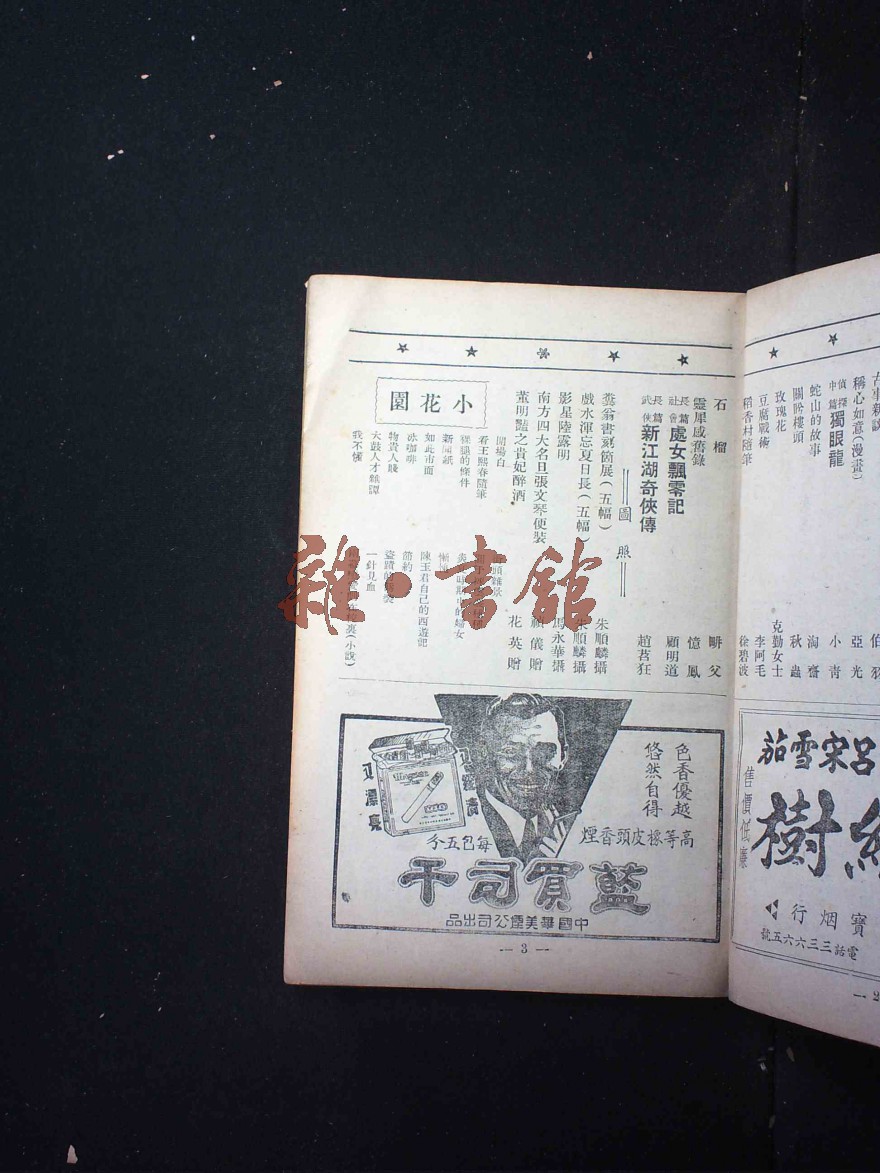 古事新談
稱心如意（漫畫） 亞光
偵探中篇 獨眼龍 小青
蛇山的故事 淘齋
關吟樓頭 秋蟲
玫瑰花 克勤女士
豆腐戰術 李阿毛
稻香村隨筆 徐碧波
石榴 畊父
靈犀感舊錄 憶鳳
社會長篇 處女飄零記 顧明道
武俠長篇 新江湖奇俠傳 趙苕狂
圖照
糞翁書刻箭展（五幅） 朱順麟攝
戲水渾忘夏日長（五幅） 朱順麟攝
影星陸露明 馬永華攝
南方四大名旦張文琴便裝 顧儀贈
董明豔之貴妃醉酒 花英贈
小花園
開場白
看王熙春隨筆
裸腿的條件
新聞紙
如此市面
冰咖啡
物貴人賤
大鼓人才雜譚
我不懂
陳玉君自己的西遊記
節約
一針見血
雜·書館
色香優越
悠然自得
高等橡皮頭香煙
每包五分
藍買司干
中國華美煙公司出品
— 3 —
呂宋雪茄
售價低廉
樹
寶烟行
電話三三六六五號
— 2